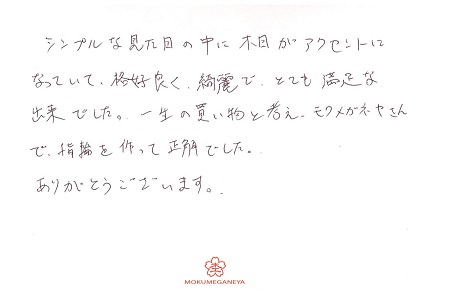 シンプルな見た目の中に木目がアクセントに
なっていて、格好良く、綺麗で、とても満足な
出来でした。一生の買い物と考え、モクメガネヤさん
で、指輪を作って正解でした。
ありがとうございます。
MOKUMEGANEYA